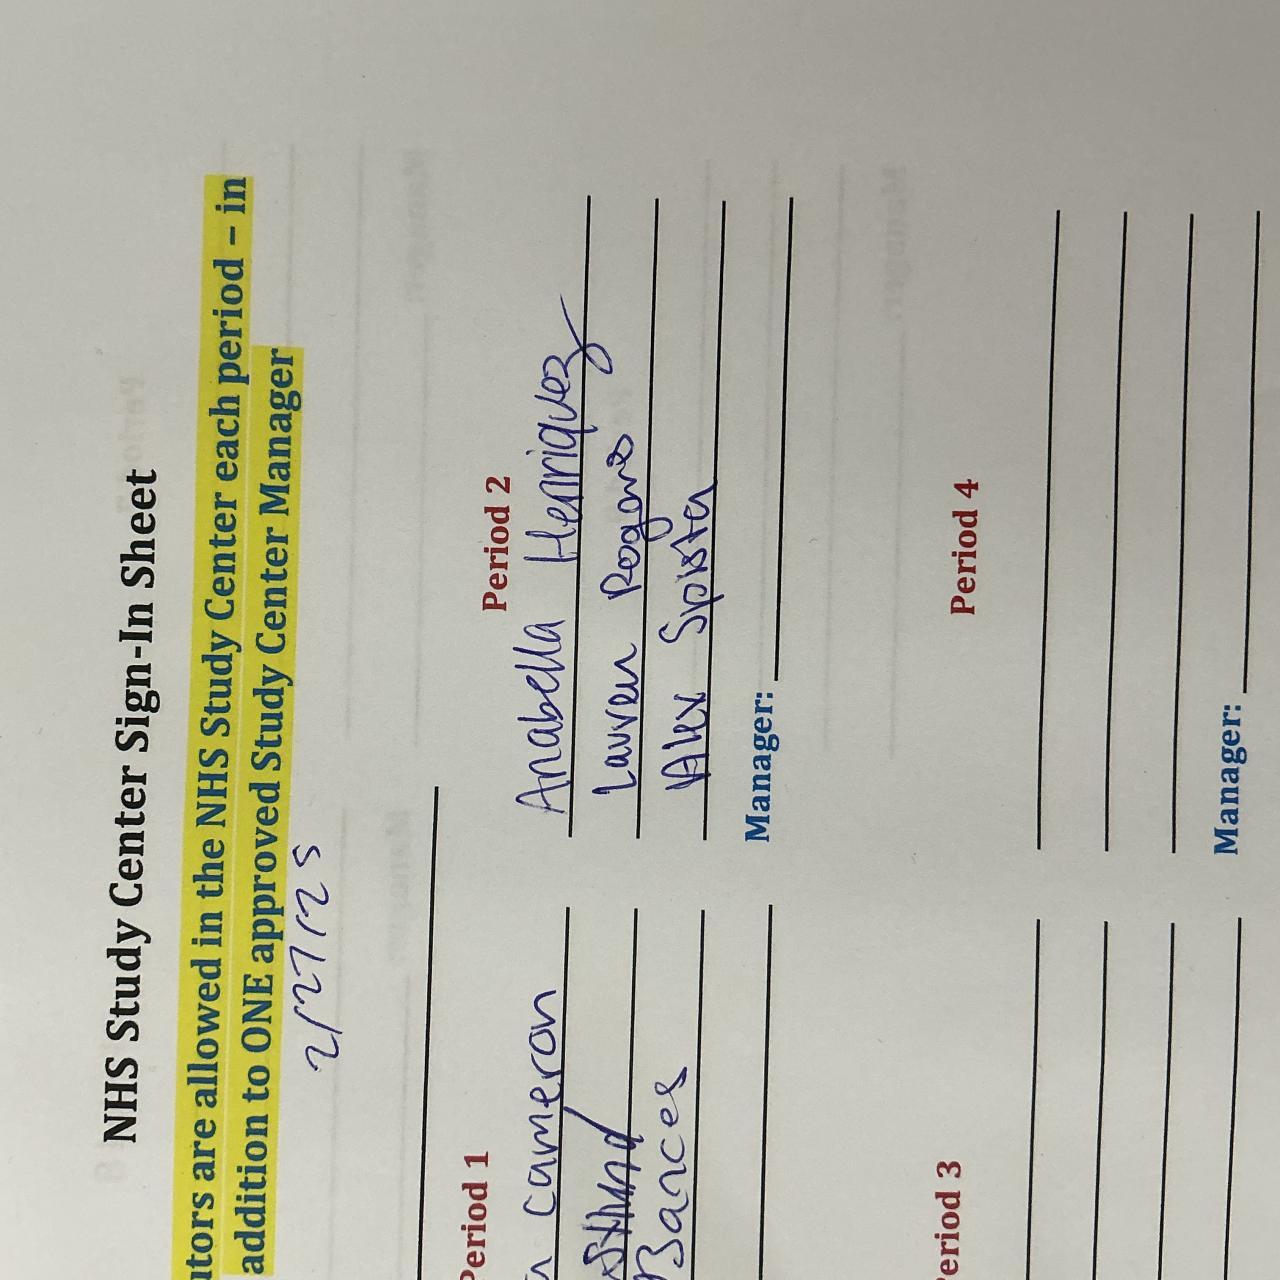 NHS Study Center Sign-In Sheet
utors are allowed in the NHS Study Center each period – in
addition to ONE approved Study Center Manager
2/27/25
Period 1
cameron
Bances
Period 2
Anabella Henriquez
Lauren Rogans
Alex
Manager:
Period 3
Period 4
Manager: